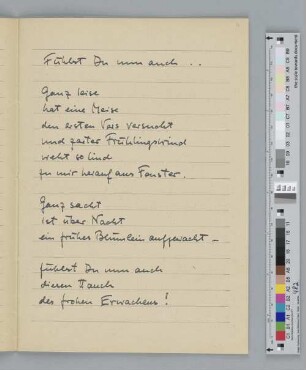 Fühlst Du nun auch . .
Ganz leise
hat eine Meise
den ersten Vers versucht
und zarter Frühlingswind
weht so lind
zu mir herauf ans Fenster.
Ganz sacht
ist über Nacht
ein frühes Blümlein aufgewacht –
fühlst Du nun auch
diesen Hauch
des frohen Erwachens!